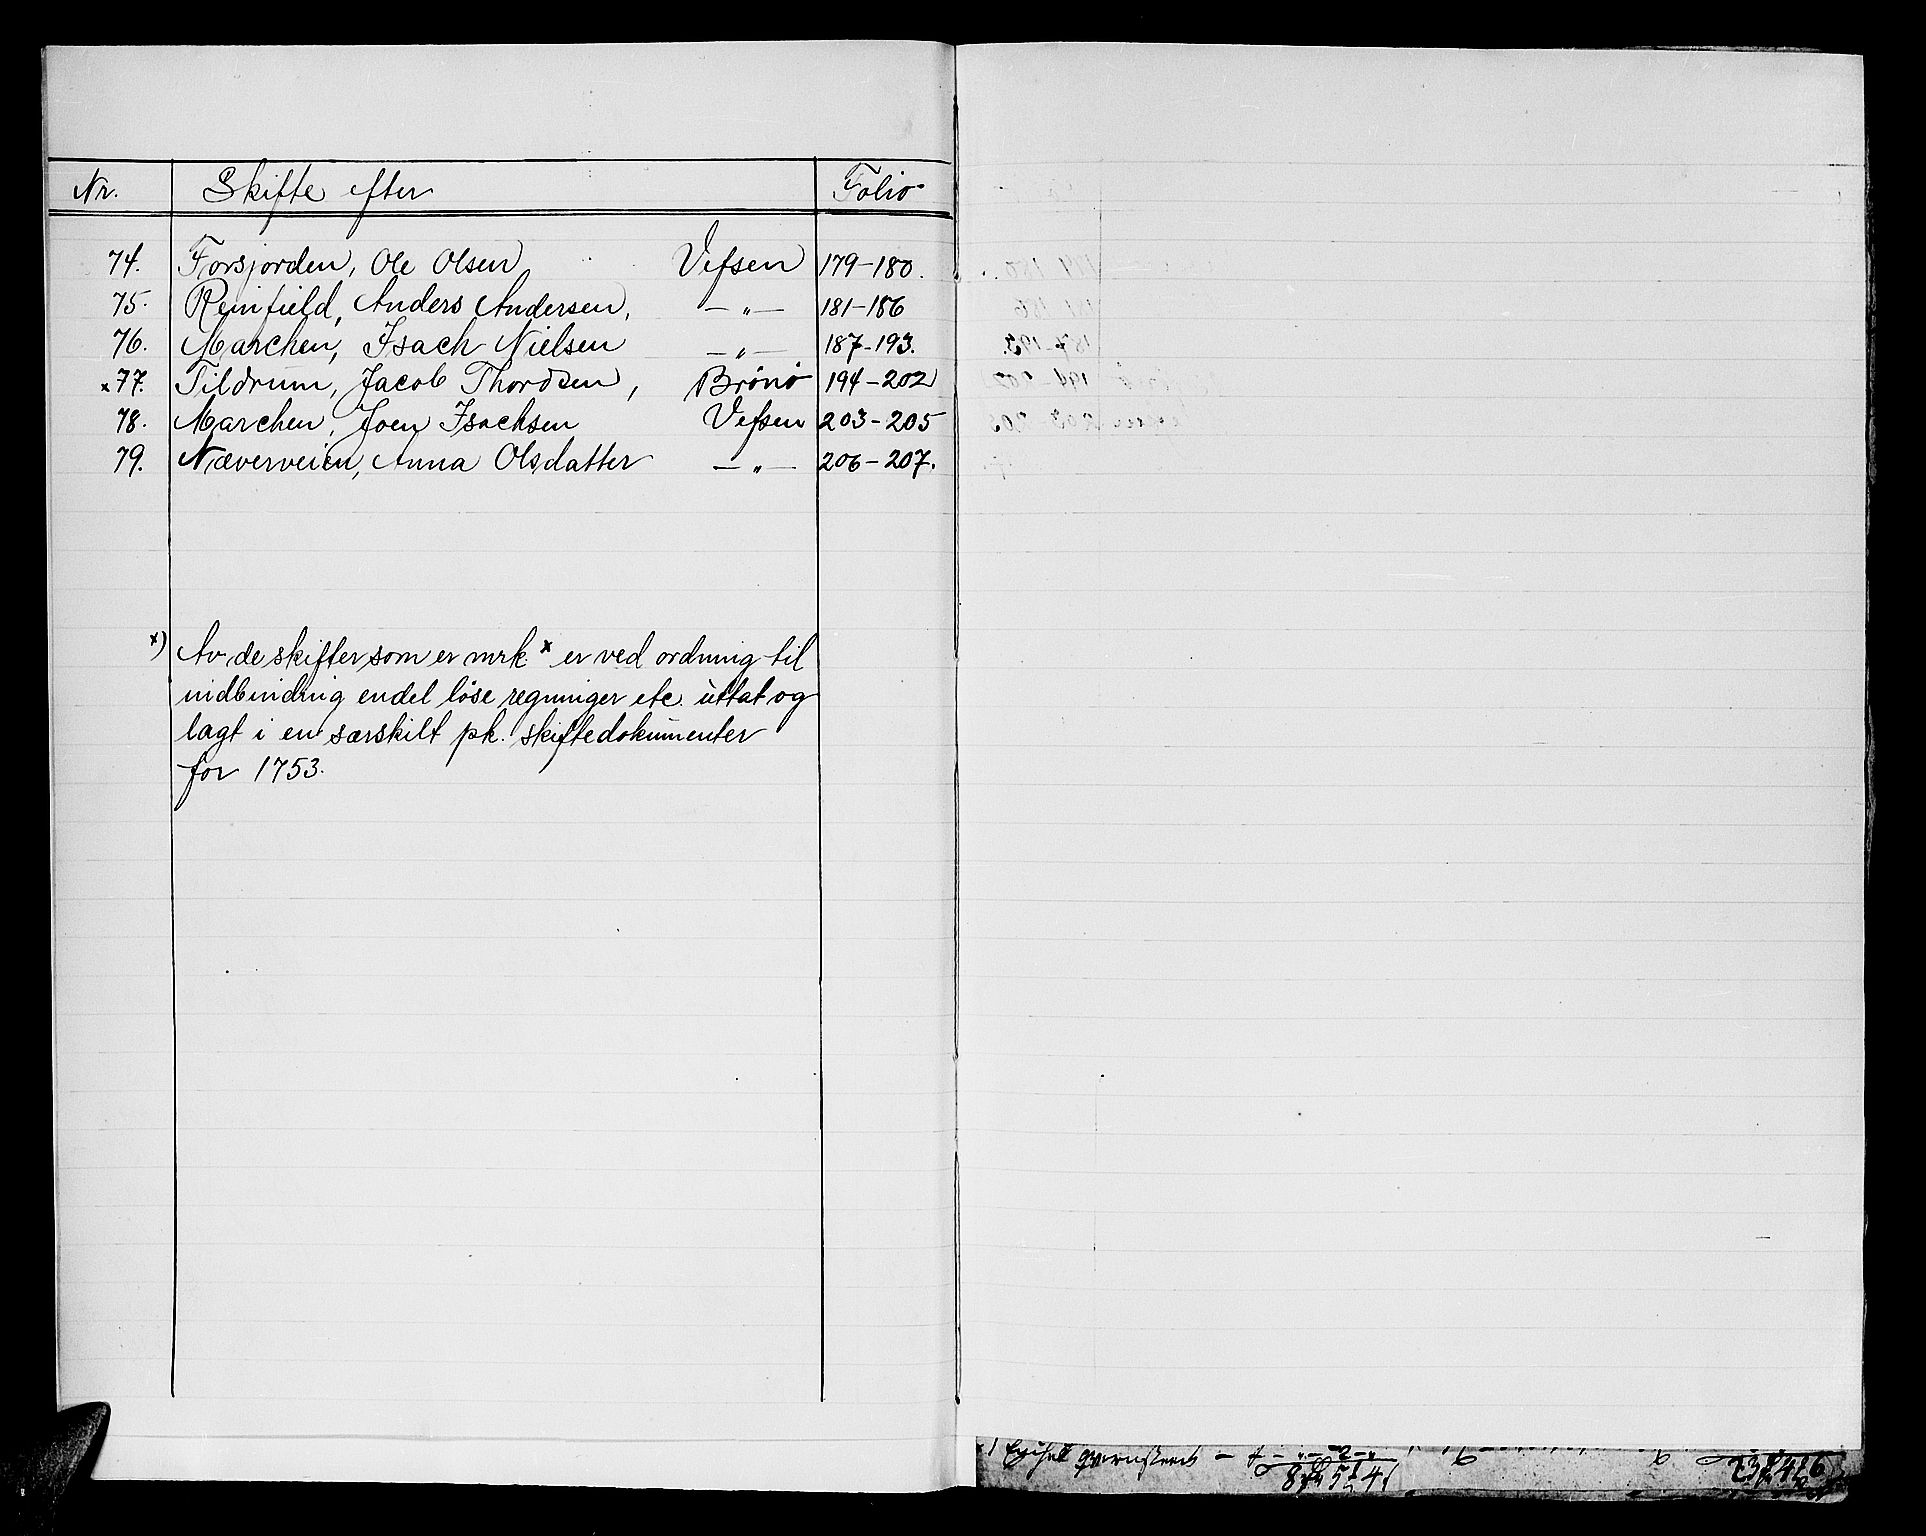 Nr. Skifte efter Folio
74. Forsjorden, Ole Olsen Vefsen 179-180.
75. Reinfield, Anders Andersen, —„— 181-186
76. Marchen, Isach Nielsen —„— 187-193.
x77. Tildrum, Jacob Thordsen, Brønø 194-202
78. Marchen, Joen Isachsen Vefsen 203-205
79. Næverveien, Anna Olsdatter —„— 206-207.
x) Av de skifter som er mrk. x er ved ordning til
indbinding endel løse regninger etc. uttat og
lagt i en særskilt pk. skiftedokumenter
for 1753.